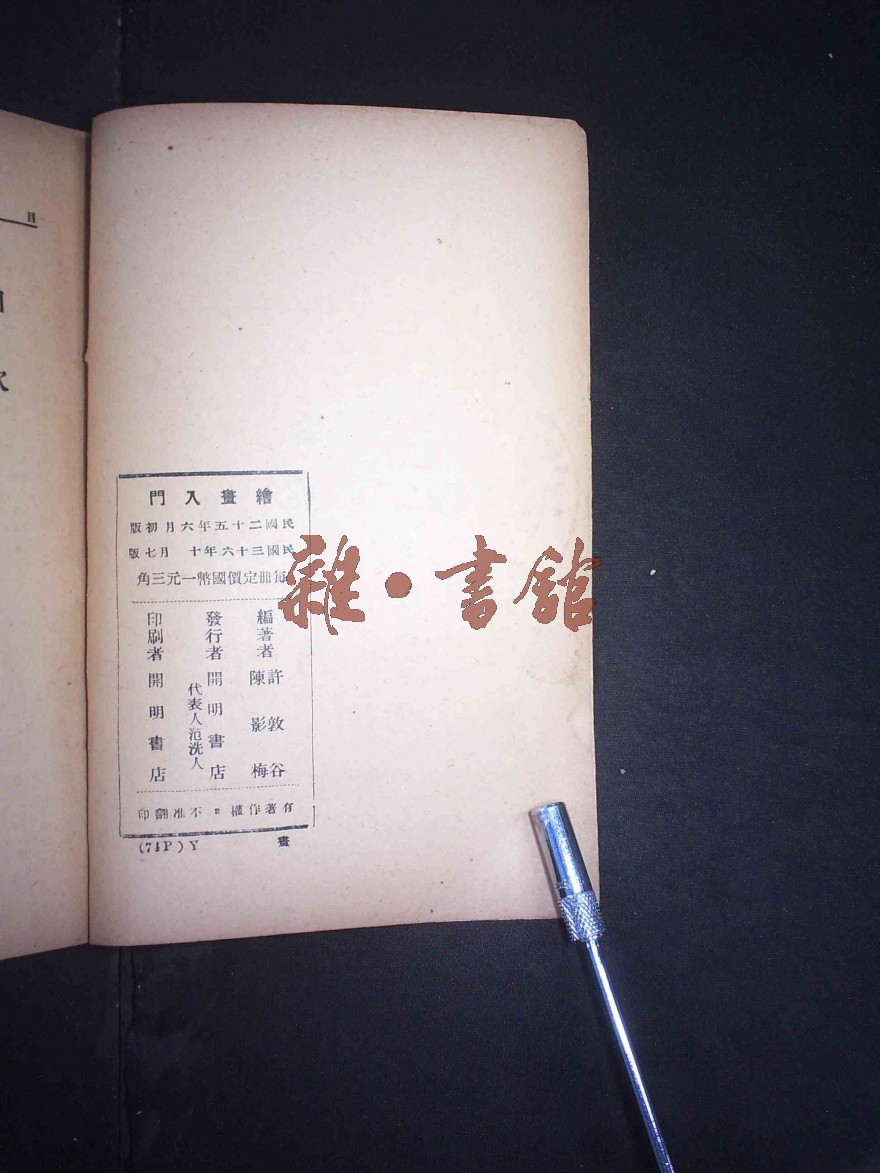 目
次
繪畫入門
民國二十五年六月初版
民國三十六年十月七版
每冊定價國幣一元三角
編著者 許敦谷 陳影梅
發行者 開明書店
代表人范洗人
印刷者 開明書店
有著作權 不准翻印
(74P)Y 畫
雜·書館